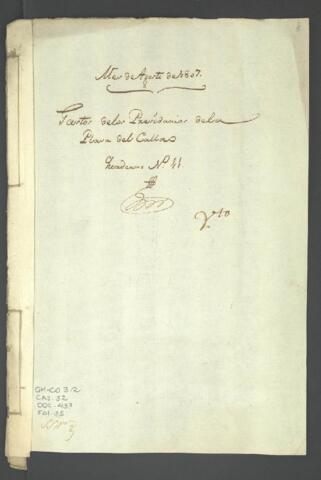 Mes de Agosto de 1807.
Gastos delos Presidiarios dela
Plaza del Callao
Quaderno Nº 11
GM-CO 3/2
CAJ. 32
DOC. 433
FOL. 35